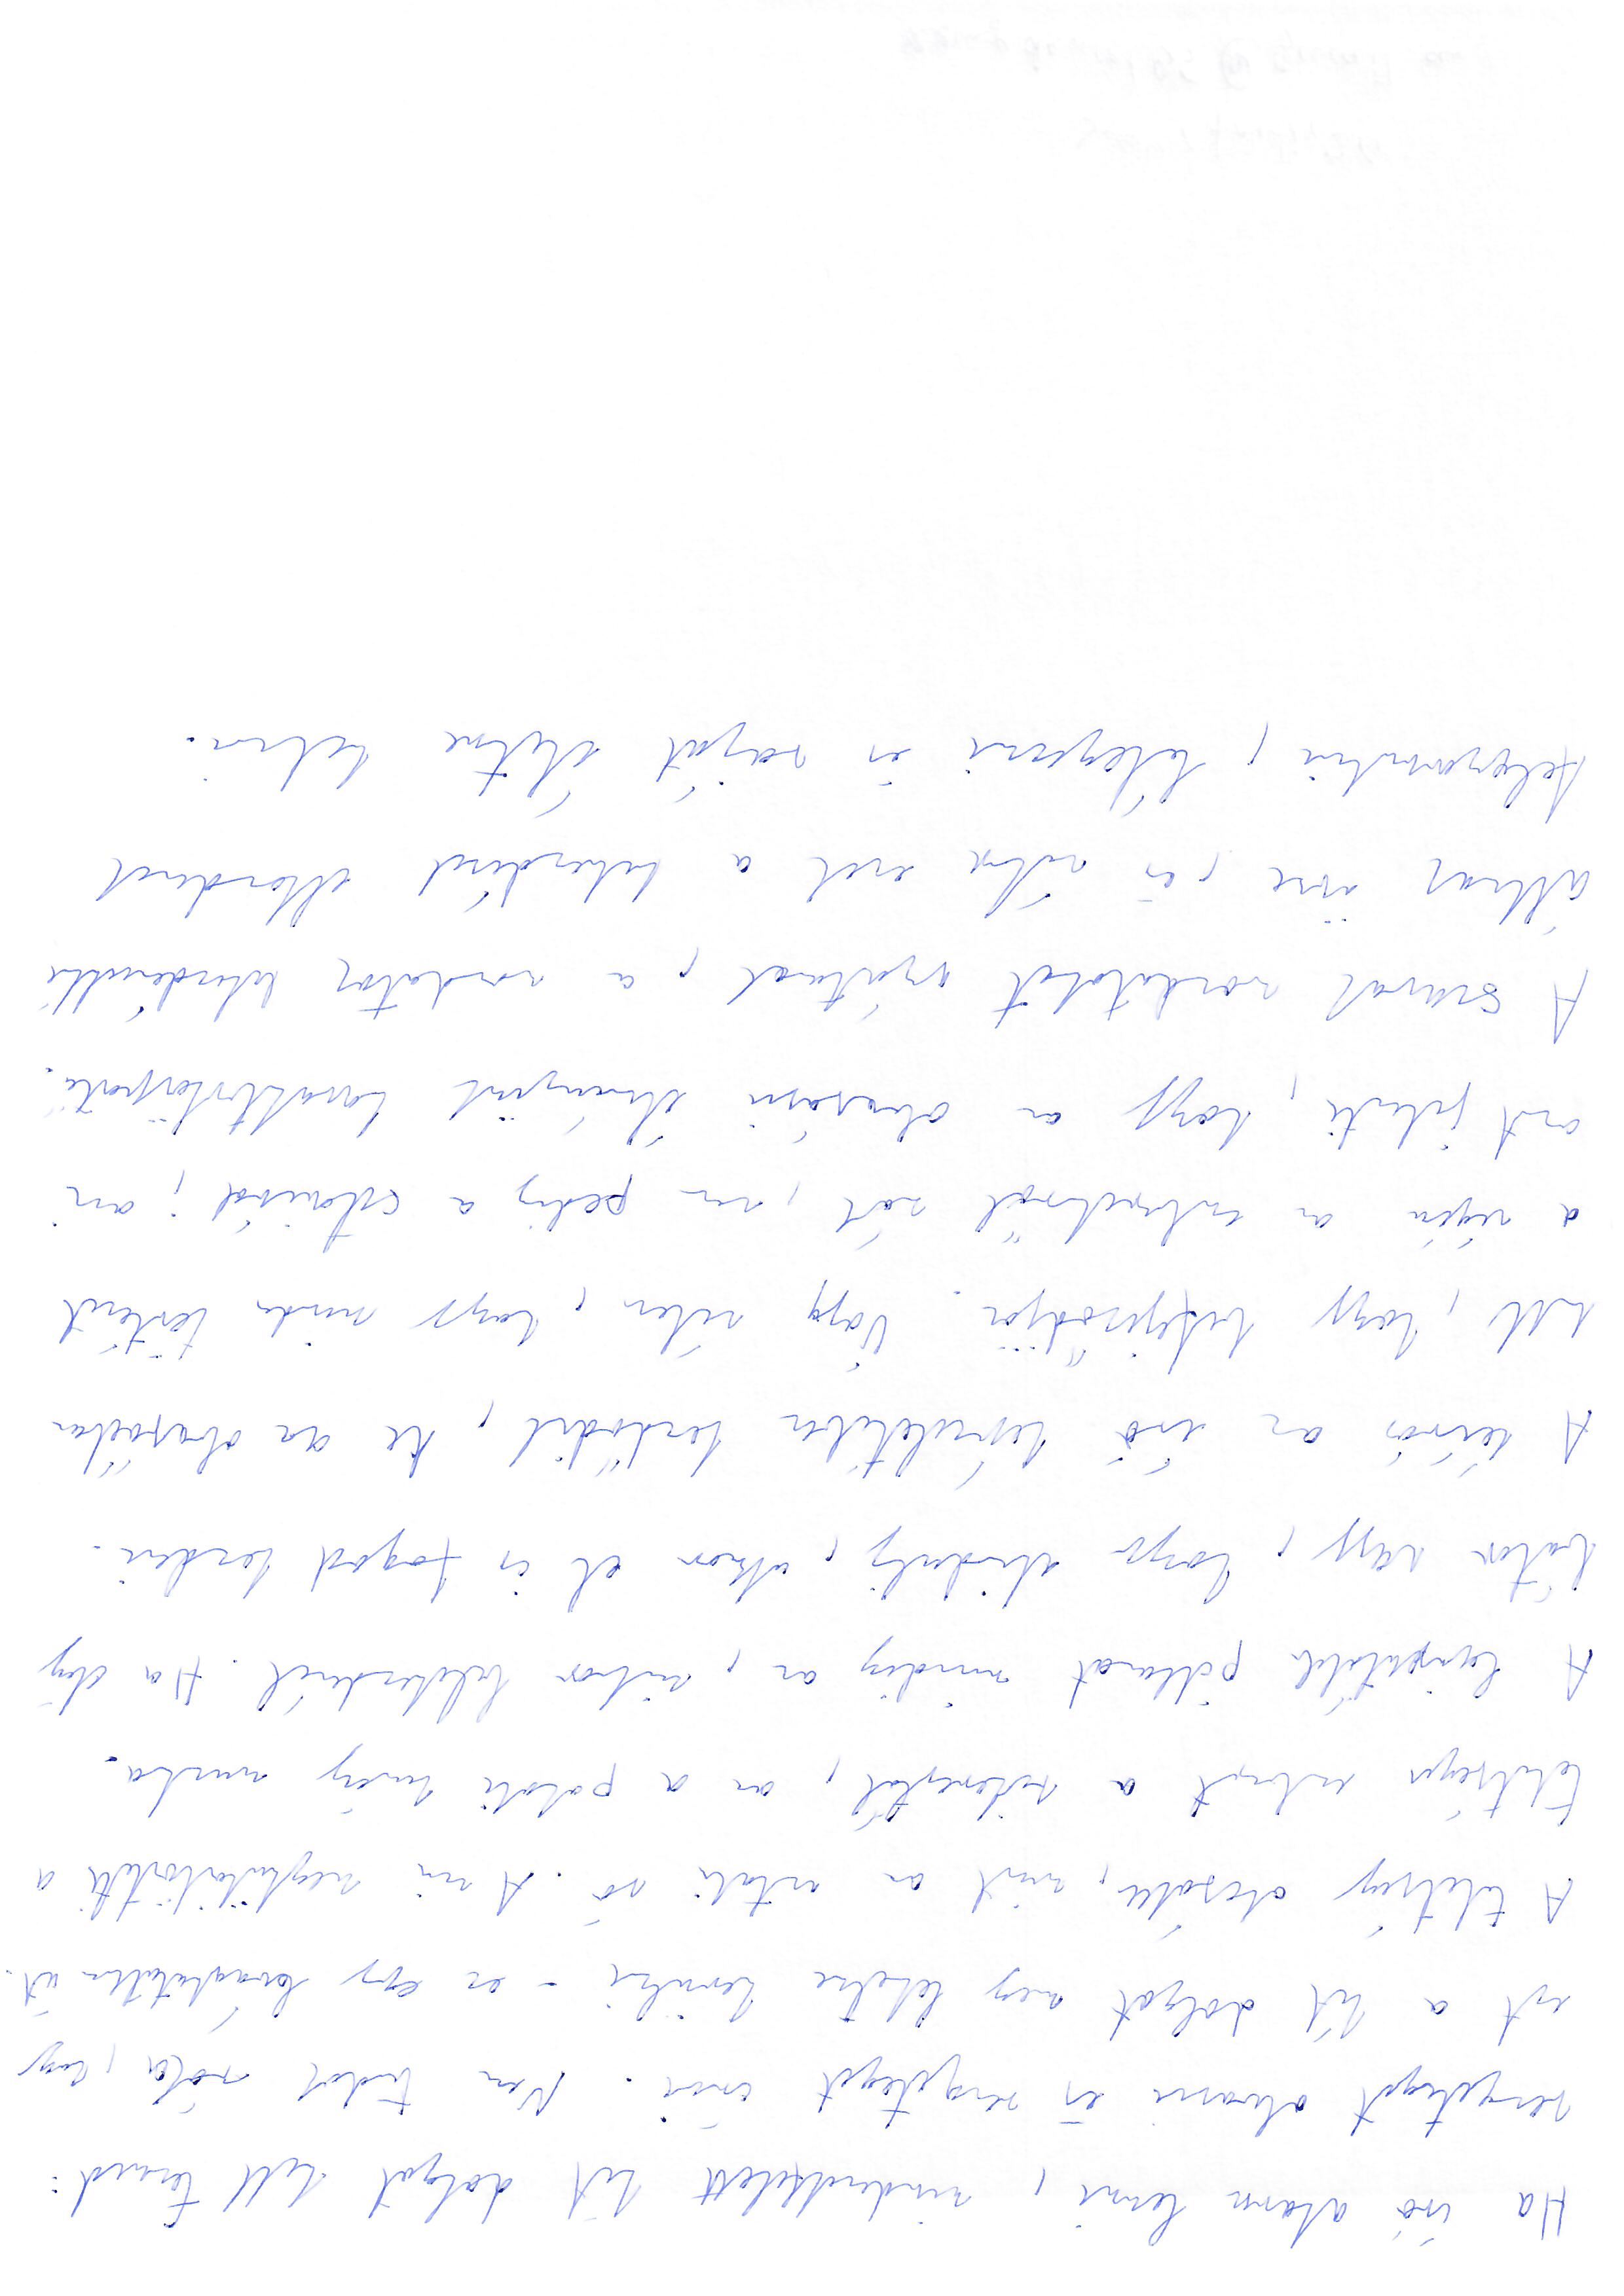 Ha író akarsz lenni, mindenekfelett két dolgot kell tenned:
rengeteget olvasni és rengeteget írni. Nem tudok róla, hogy
ezt a két dolgot meg lehetne kerülni - ez egy levághatatlan út.
A tehetség olcsóbb, mint az asztali só. A mi megkülönbözteti a
tehetséges embert a sikerestől, az a pokoli kemény munka.
A legijesztőbb pillanat mindig az, mikor belekezdenél. Ha elég
bátor vagy, hogy elindulj, akkor el is fogod kezdeni.
A leírás az író képzeletében kezdődik, de az olvasóéban
kell, hogy befejeződjön. Úgy vélem, hogy minden történet
a végén az emberekről szól, nem pedig a sztoriról; ami
azt jelenti, hogy az olvasási élményünk karakterközpontú.
A szavak mondatokat gyártanak, a mondatok bekezdésekké
állnak össze, és néha ezek a bekezdések elkezdenek
felgyorsulni, lélegezni és saját életre kelni.